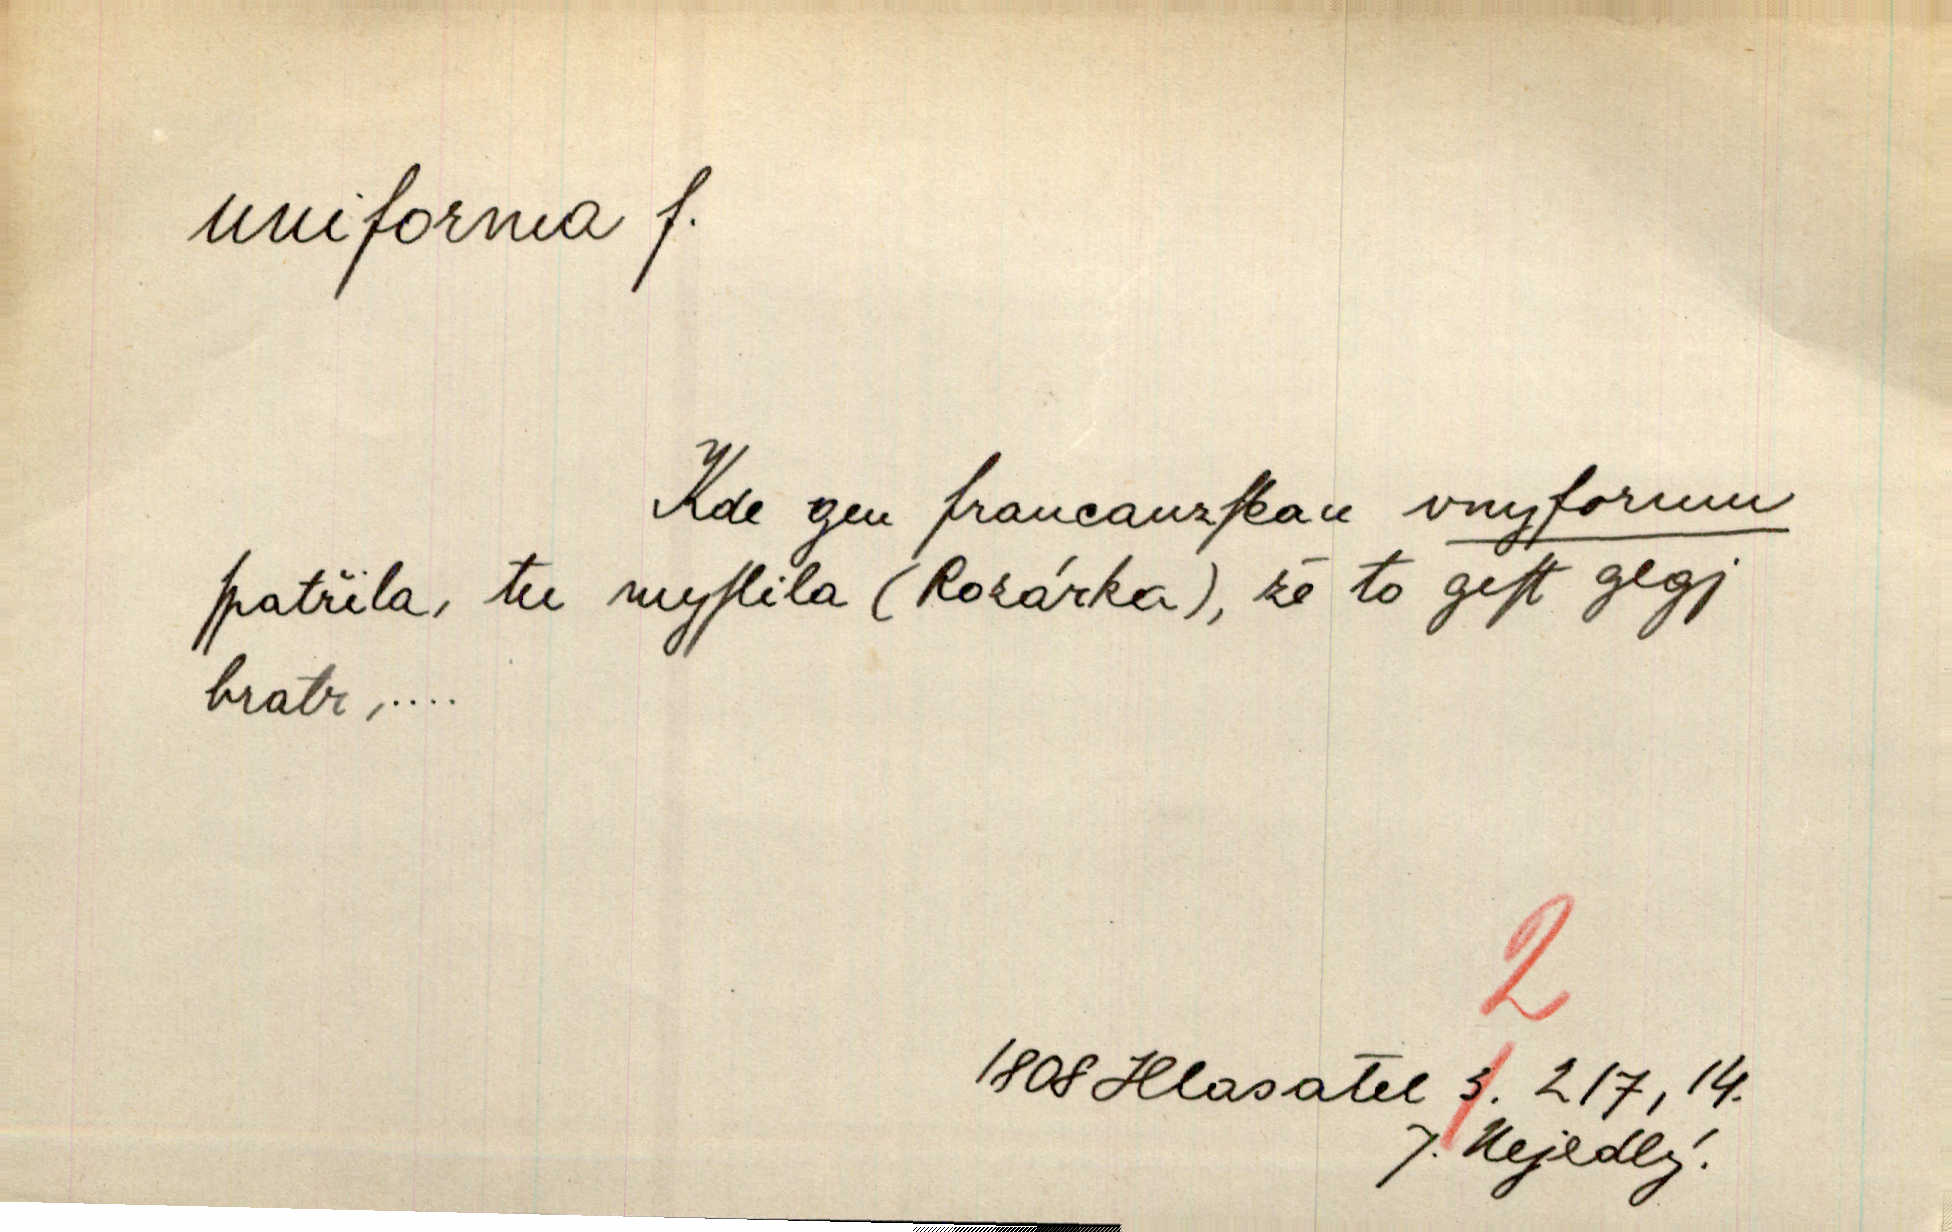 uniforma f.
Kde gen francauzſkau vnyformu
ſpatřila, tu myſlila (Rozárka), že to geſt gegj
bratr,....
2
1808 Hlasatel 3. 217, 14.
J. Nejedlý.